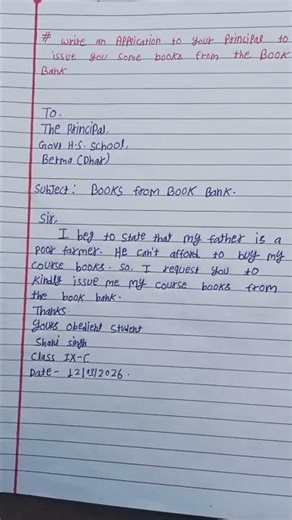 # write an Application to your Principal to
issue you some books from the Book
Bank
To,
The Principal,
Govt H.S. School,
Berma (Dhar)
Subject: Books from Book Bank.
Sir,
I beg to state that my father is a
poor farmer. He can't afford to buy my
course books. So, I request you to
kindly issue me my course books from
the book bank.
Thanks.
yours obedient student
Shani singh
Class IX-C
Date- 12/03/2026.